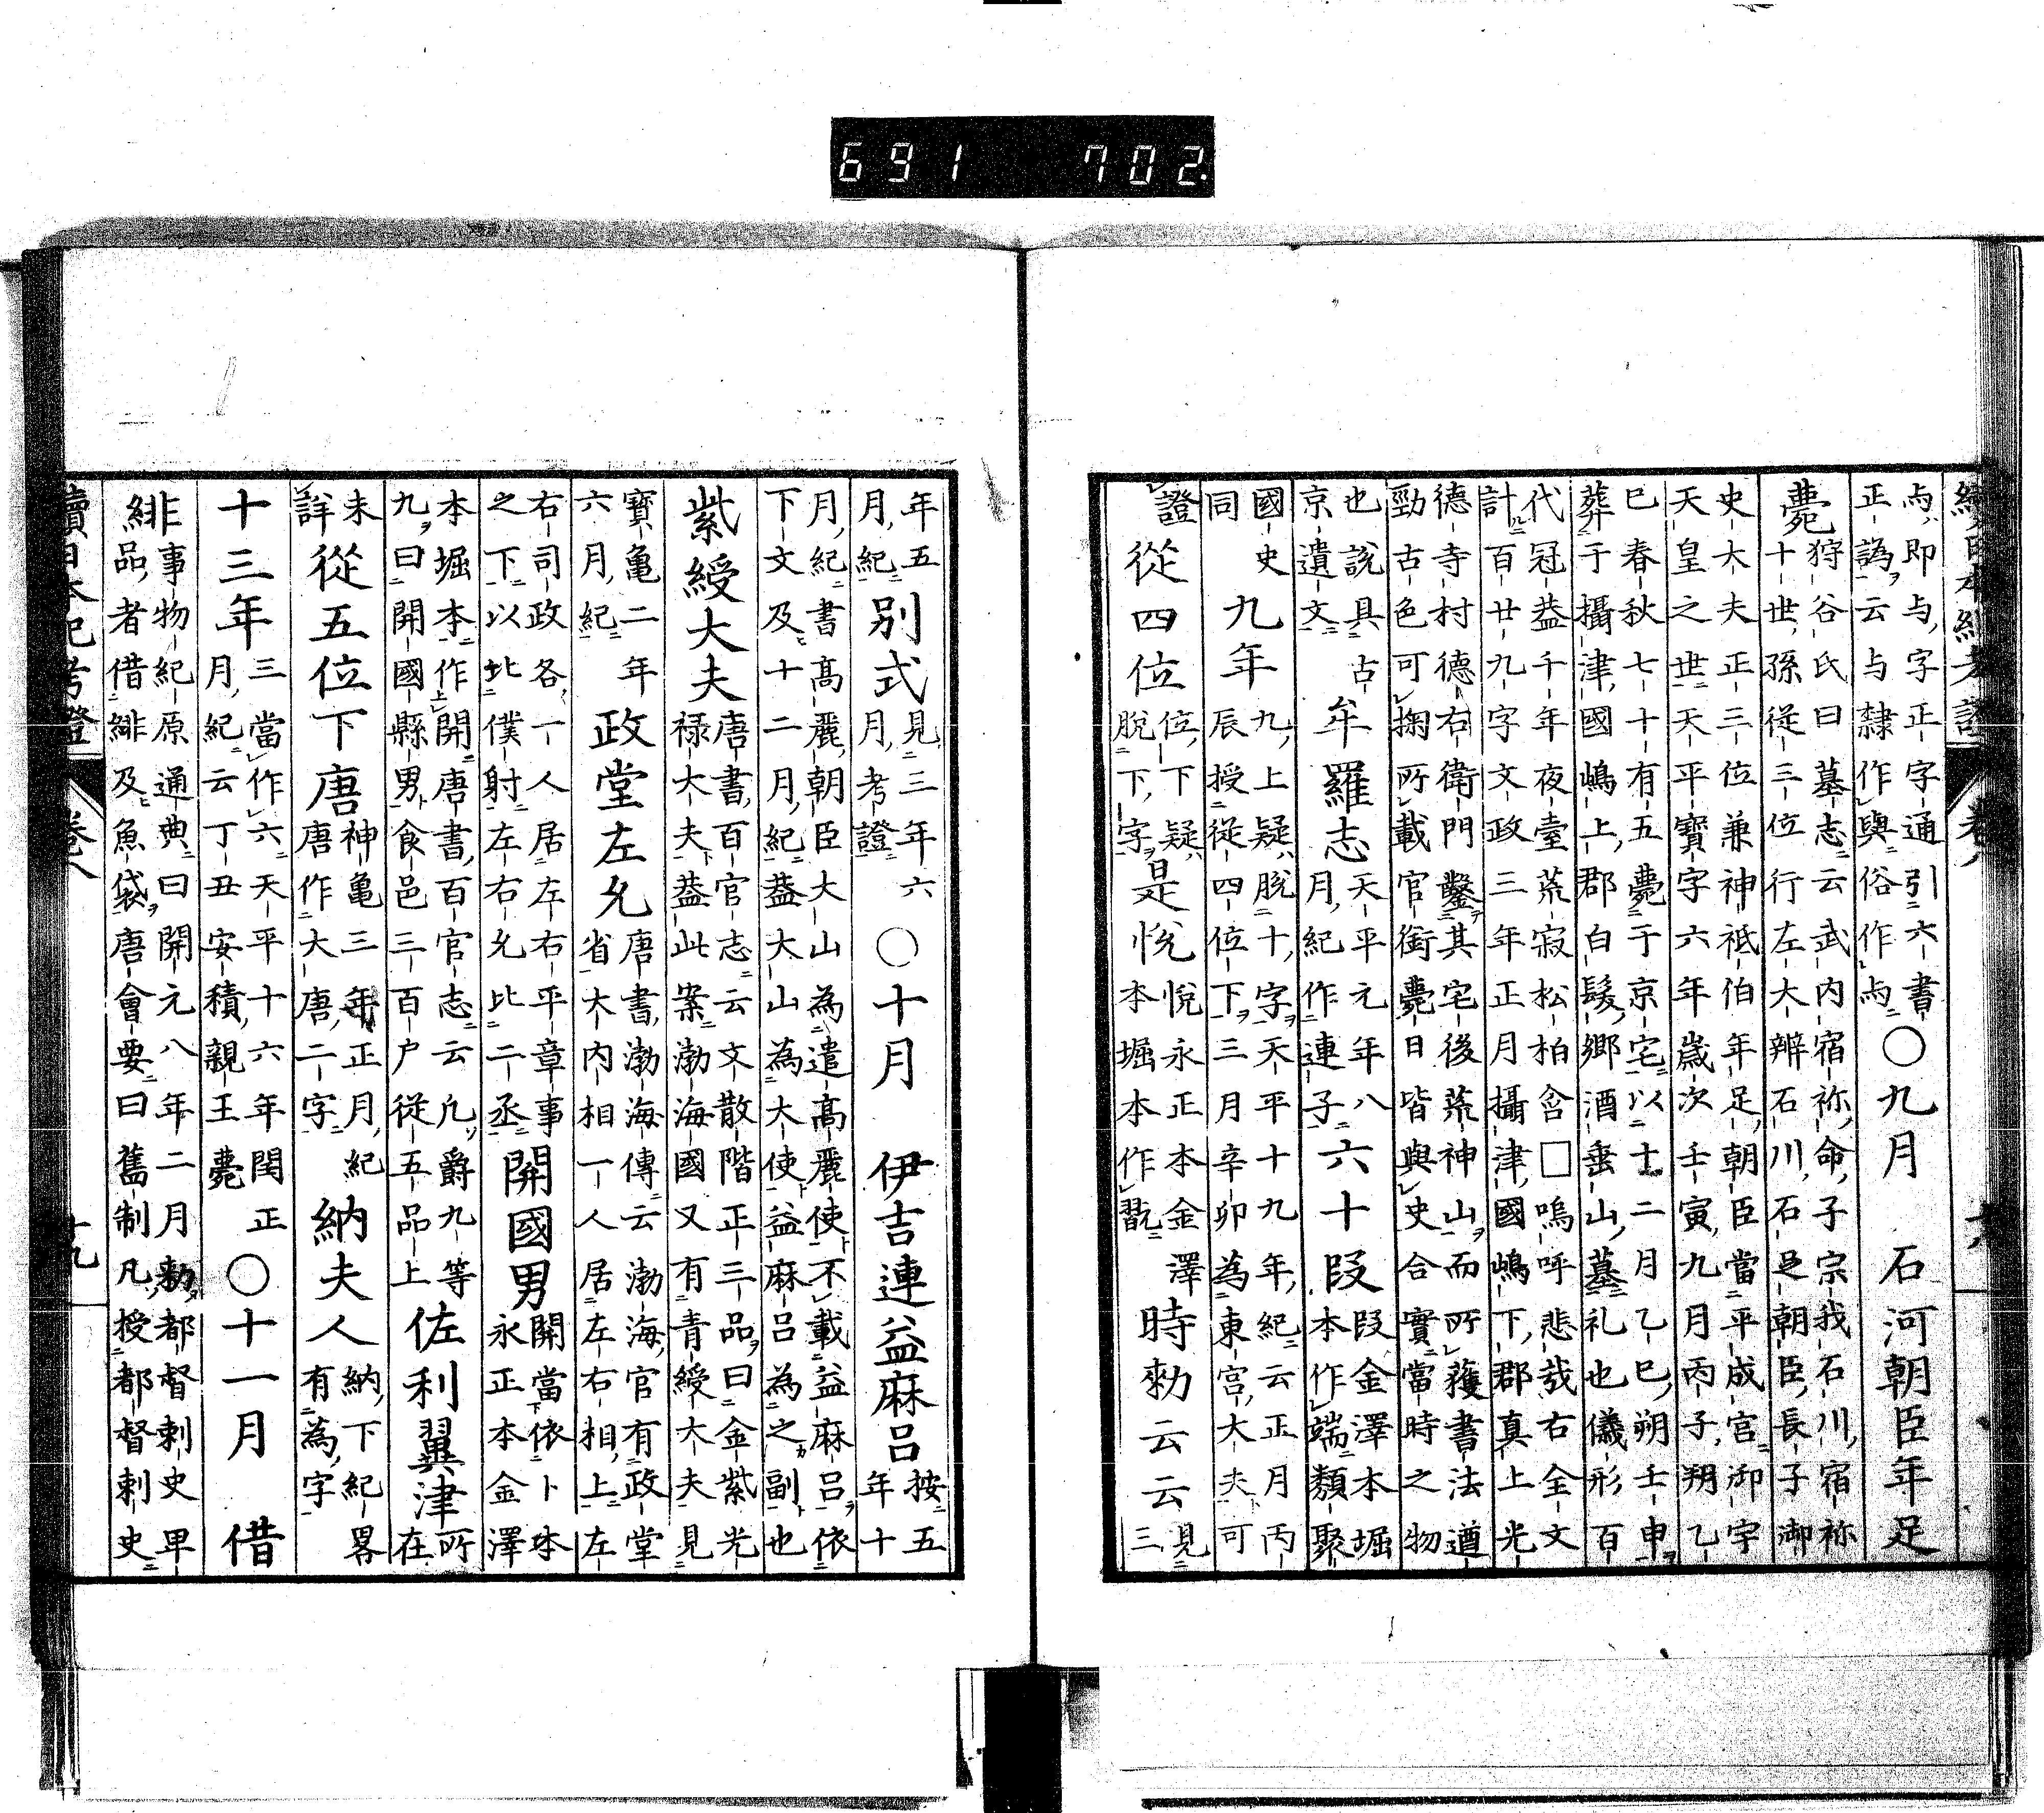 691 702
續日本紀考證 卷八 十八
与即与字正字通引六書
正譌云与隸作與俗作与
○九月 石河朝臣年足
薨
狩谷氏曰墓志云武内宿祢命子宗我石川宿祢
十世孫従三位行左大辨石川石足朝臣長子御
史大夫正三位兼神祇伯年足朝臣當平成宮御宇
天皇之世天平寶字六年歳次壬寅九月丙子朔乙
巳春秋七十有五薨于京宅以十二月乙巳朔壬申
葬于攝津國嶋上郡白髮郷酒垂山墓礼也儀形百
代冠盖千年夜臺荒寂松柏含□嗚呼悲哉右全文
計百廿九字文政三年正月攝津國嶋下郡真上光
德寺村德右衛門鑿其宅後荒神山而所獲書法遒
勁古色可掬所載官銜薨日皆與史合實當時之物
也說具古
京遺文
牟羅志
天平元年八
月紀作連子
六十段
段金澤本堀
本作端類聚
國史
同
九年
九上疑脱十字天平十九年紀云正月丙
辰授從四位下三月辛卯為東宮大夫可
證
從四位
位下疑
脱下字
是悅
悅永正本金澤
本堀本作翫
時勅云云
見
三
年五
月紀
別式
見三年六
月考證
○十月 伊吉連益麻呂
按五
年十
月紀書高麗朝臣大山為遣高麗使不載益麻呂依
下文及十二月紀蓋大山為大使益麻呂為之副也
紫綬大夫
唐書百官志云文散階正三品曰金紫光
禄大夫蓋此案渤海國又有青綬大夫見
寶亀二年
六月紀
政堂左允
唐書渤海傳云渤海官有政堂
省大内相一人居左右相上左
右司政各一人居左右平章事
之下以比僕射左右允比二丞
開國男
開當依卜本
永正本金澤
本堀本作開唐書百官志云凡爵九等
九曰開國縣男食邑三百户從五品上
佐利翼津
所
在
未
詳
從五位下唐
神亀三年正月紀
唐作大唐二字
納夫人
納下紀畧
有為字
十三年
三當作六天平十六年閏正
月紀云丁丑安積親王薨
○十一月 借
緋
事物紀原通典曰開元八年二月敕都督刺史卑
品者借緋及魚袋唐會要曰舊制凡授都督刺史
續日本紀考證 卷八 十九